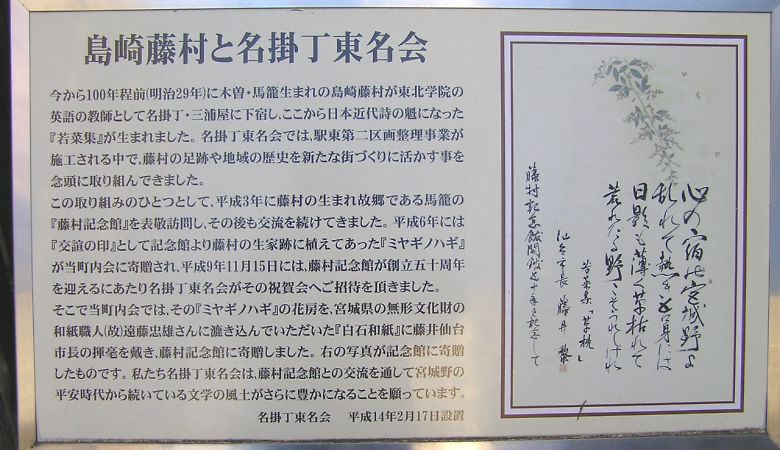 島崎藤村と名掛丁東名会
今から100年程前(明治29年)に木曽・馬籠生まれの島崎藤村が東北学院の
英語の教師として名掛丁・三浦屋に下宿し、ここから日本近代詩の魁になった
『若菜集』が生まれました。名掛丁東名会では、駅東第二区画整理事業が
施工される中で、藤村の足跡や地域の歴史を新たな街づくりに活かす事を
念頭に取り組んできました。
この取り組みのひとつとして、平成3年に藤村の生まれ故郷である馬籠の
『藤村記念館』を表敬訪問し、その後も交流を続けてきました。平成6年には
『交誼の印』として記念館より藤村の生家跡に植えてあった『ミヤギノハギ』
が当町内会に寄贈され、平成9年11月15日には、藤村記念館が創立五十周年
を迎えるにあたり名掛丁東名会がその祝賀会へご招待を頂きました。
そこで当町内会では、その『ミヤギノハギ』の花房を、宮城県の無形文化財の
和紙職人(故)遠藤忠雄さんに漉き込んでいただいた『白石和紙』に藤井仙台
市長の揮毫を戴き、藤村記念館に寄贈しました。右の写真が記念館に寄贈
したものです。私たち名掛丁東名会は、藤村記念館との交流を通して宮城野の
平安時代から続いている文学の風土がさらに豊かになることを願っています。
名掛丁東名会 平成14年2月17日設置
心の宿の宮城野よ
乱れて熱き吾身には
日影も薄く草枯れて
荒れたる野こそうれしけれ
若菜集「草枕」
仙台市長 藤井 黎
藤村記念館開館五十年を記念して